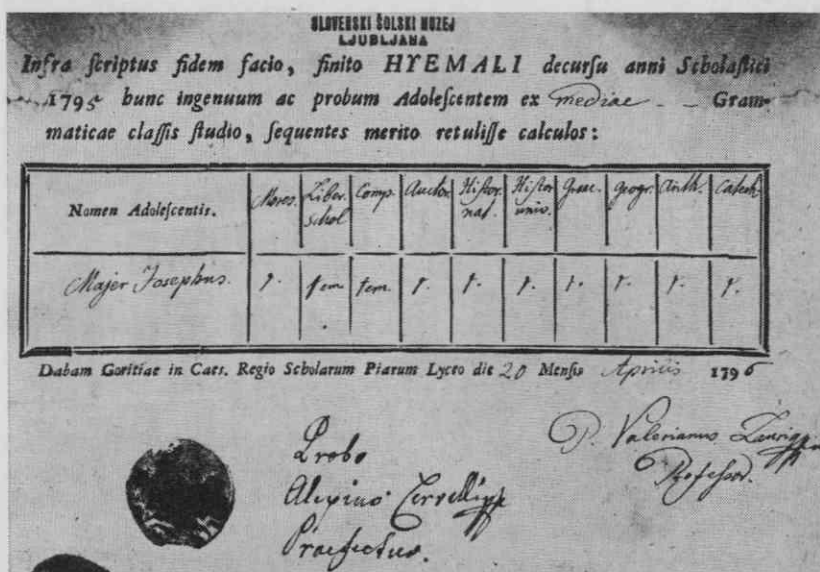 SLOVENSKI ŠOLSKI MUZEJ
LJUBLJANA
Infra ſcriptus fidem facio, finito HYEMALI decurſu anni Scholaſtici
1795 hunc ingenuum ac probum Adoleſcentem ex mediae - - Gram-
maticae claſſis ſtudio, ſequentes merito retuliſſe calculos:
Nomen Adoleſcentis. Mores. Liber. schol Comp. Auctor. Histor. nat. Histor univ. Graec. Geogr. Arith. Catech.
Majer Josephus. 1. 1 em. 1 em. 1. 1. 1. 1. 1. 1. 1.
Dabam Goritiae in Caes. Regio Scholarum Piarum Lyceo die 20 Menſis Aprilis 1796
P. Valerianus
Professor.
Probo
Praefectus.